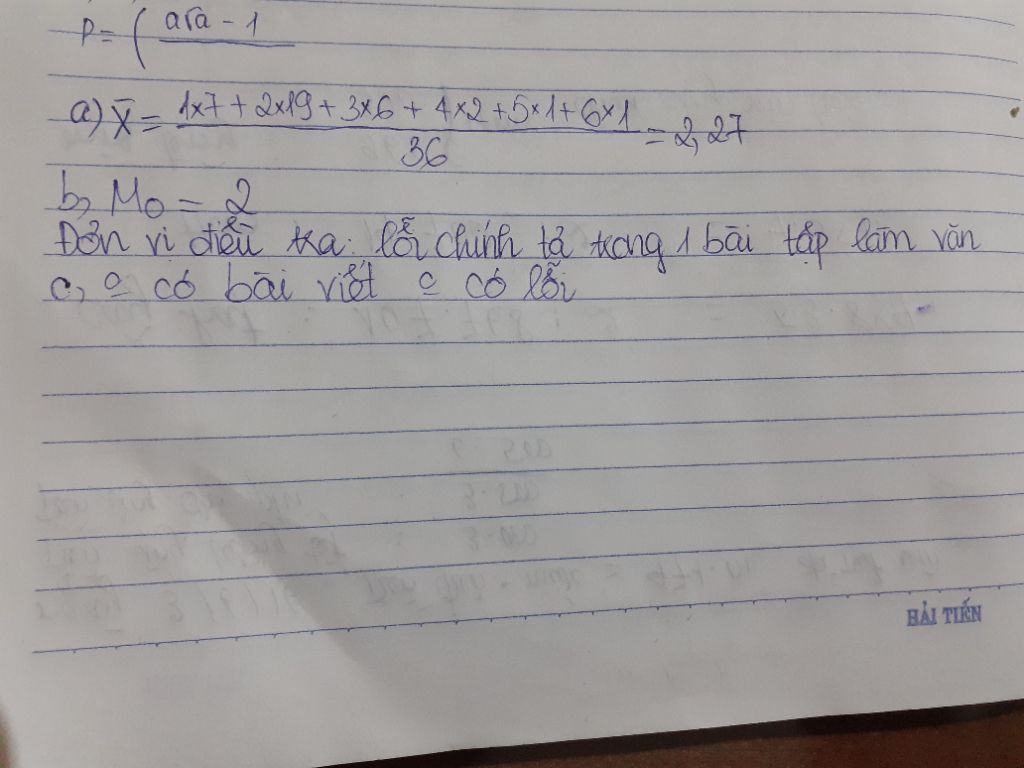 P = ( a√a - 1
a) X̄ = 1×7 + 2×19 + 3×6 + 4×2 + 5×1 + 6×1 / 36 = 2,27
b, M₀ = 2
Đơn vị điều tra: lỗi chính tả trong 1 bài tập làm văn
c, có bài viết có lỗi
HẢI TIẾN